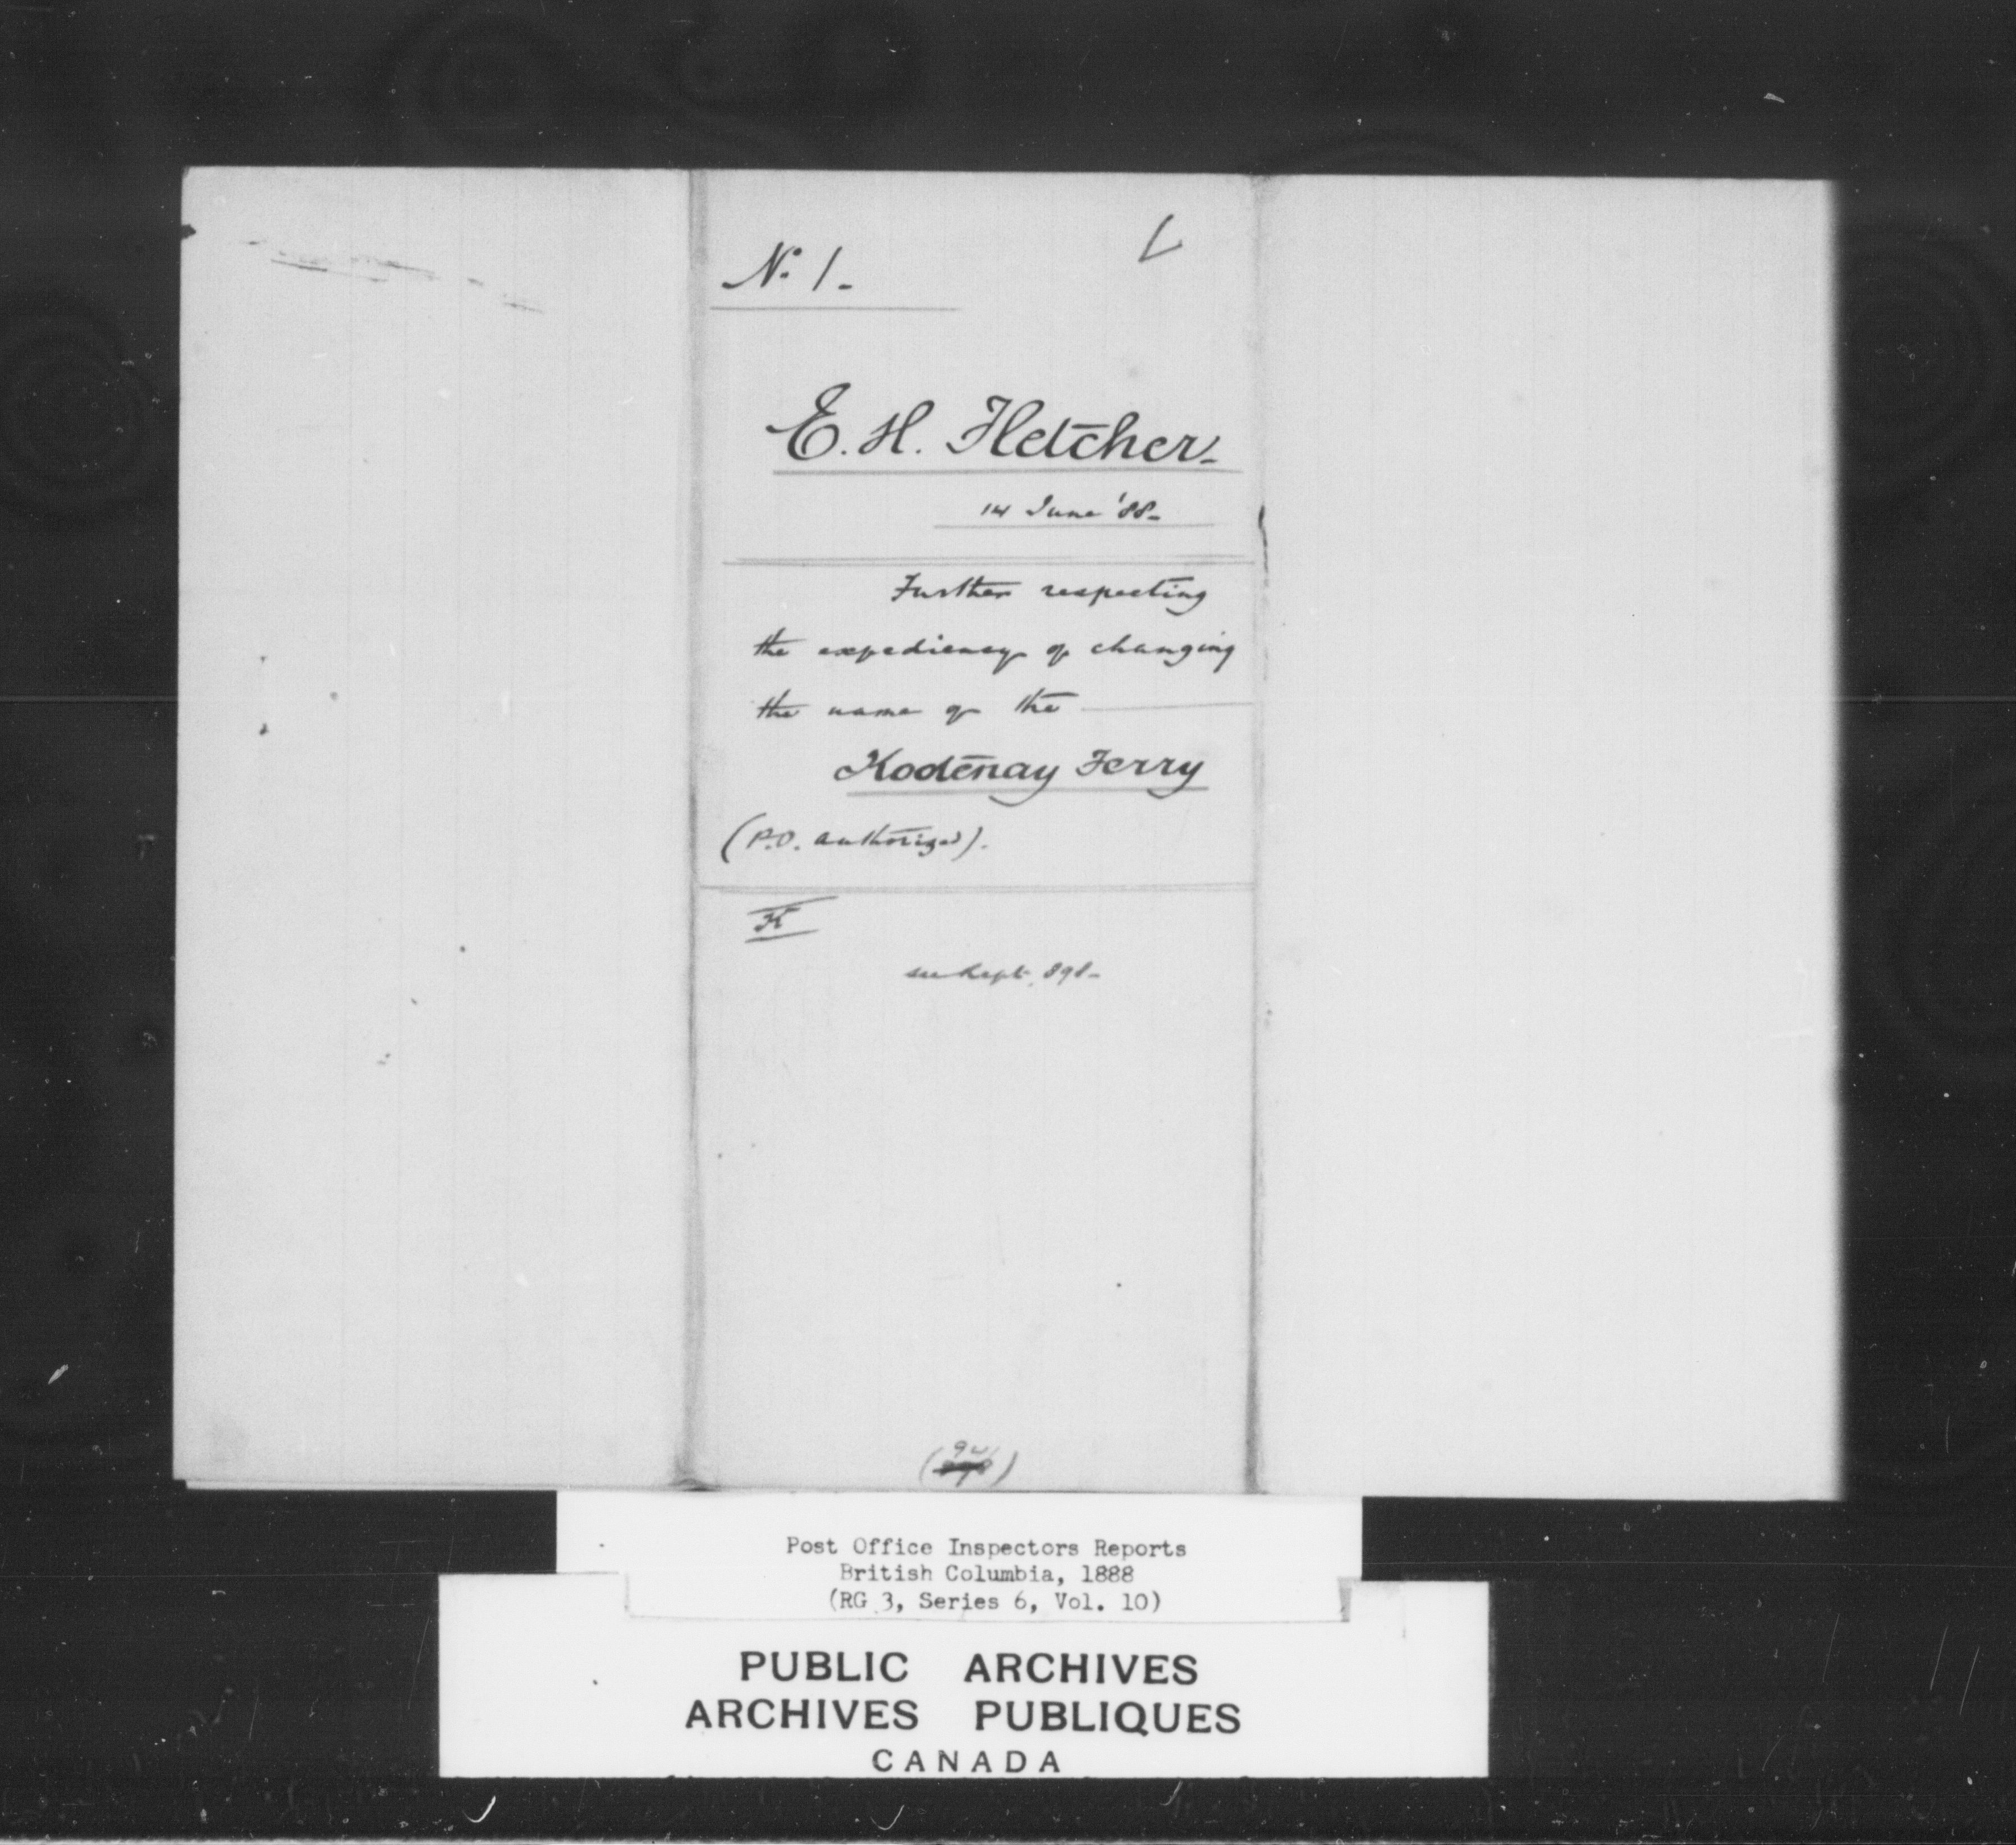 No. 1.
E. H. Fletcher.
14 June '88.
Further respecting
the expediency of changing
the name of the
Kootenay Ferry
(P.O. authorized).
K
see Rept. 898
Post Office Inspectors Reports
British Columbia, 1888
(RG 3, Series 6, Vol. 10)
PUBLIC ARCHIVES
ARCHIVES PUBLIQUES
CANADA